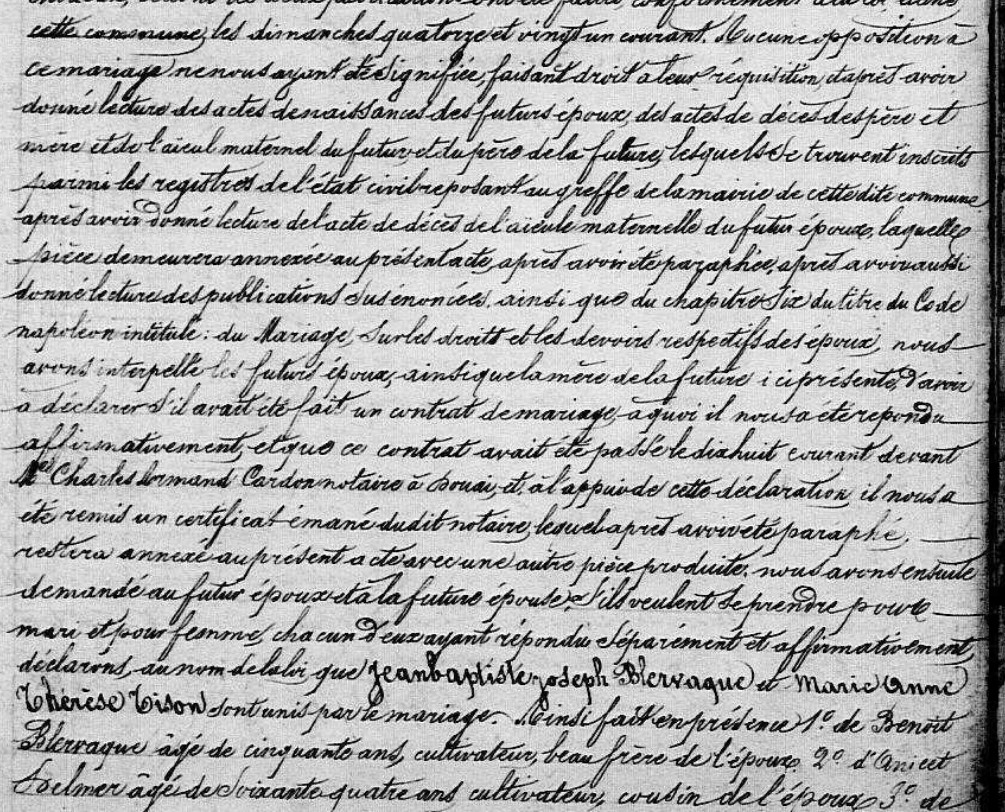 cette commune, les dimanches quatorze et vingt un courant. Aucune opposition à
ce mariage ne nous ayant été signifiée, faisant droit à leur réquisition, après avoir
donné lecture des actes de naissances des futurs époux, des actes de décès des père et
mère et de l'aïeul maternel du futur et du père de la future, lesquels se trouvent inscrits
parmi les registres de l'état civil reposant au greffe de la mairie de cette dite commune
après avoir donné lecture de l'acte de décès de l'aïeule maternelle du futur époux, laquelle
pièce demeurera annexée au présent acte, après avoir été paraphée, après avoir aussi
donné lecture des publications susénoncées, ainsi que du chapitre six du titre du Code
napoléon intitulé : du Mariage, sur les droits et les devoirs respectifs des époux, nous
avons interpellé les futurs époux, ainsi que la mère de la future ici présente, d'avoir
à déclarer s'il avait été fait un contrat de mariage, à quoi il nous a été répondu
affirmativement, et que ce contrat avait été passé le dix huit courant devant
Charles Armand Cardon notaire à Douai, et à l'appui de cette déclaration il nous a
été remis un certificat émané dudit notaire, lequel après avoir été paraphé.
restera annexé au présent acte avec une autre pièce produite. nous avons ensuite
demandé au futur époux et à la future épouse s'ils veulent se prendre pour
mari et pour femme, chacun d'eux ayant répondu séparément et affirmativement,
déclarons, au nom de la loi, que Jean baptiste Joseph Blervaque et Marie Anne
Thérèse Tison sont unis par le mariage. Ainsi fait en présence 1º de Benoît
Blervaque âgé de cinquante ans, cultivateur, beau frère de l'époux, 2º d'Anicet
Delmer âgé de soixante quatre ans cultivateur, cousin de l'époux, 3º de